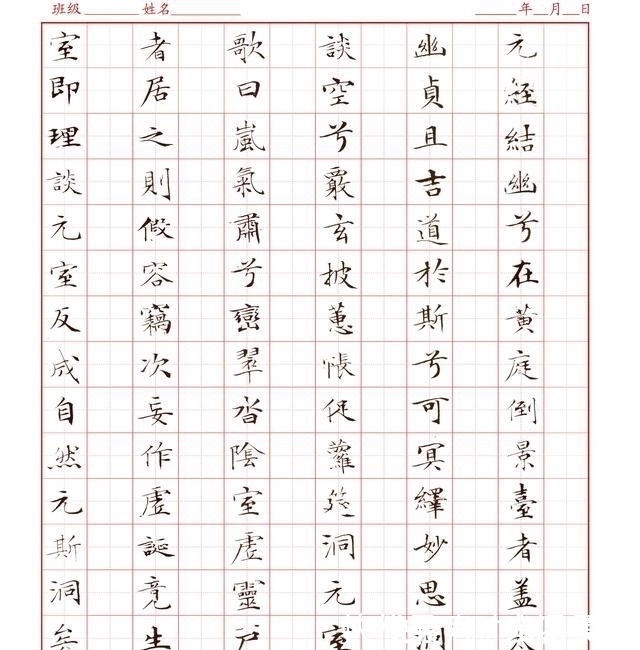 班级 姓名 年 月 日
元經結幽兮在黄庭倒景臺者蓋
幽貞且吉道於斯兮可冥繹妙思洞
談空兮覈玄披蕙帳促蘿筵洞元室
歌曰嵐氣肅兮巒翠沓陰室虛靈戶
者居之則假容竊次妄作虛誕竟生
室即理談元室反成自然元斯洞矣